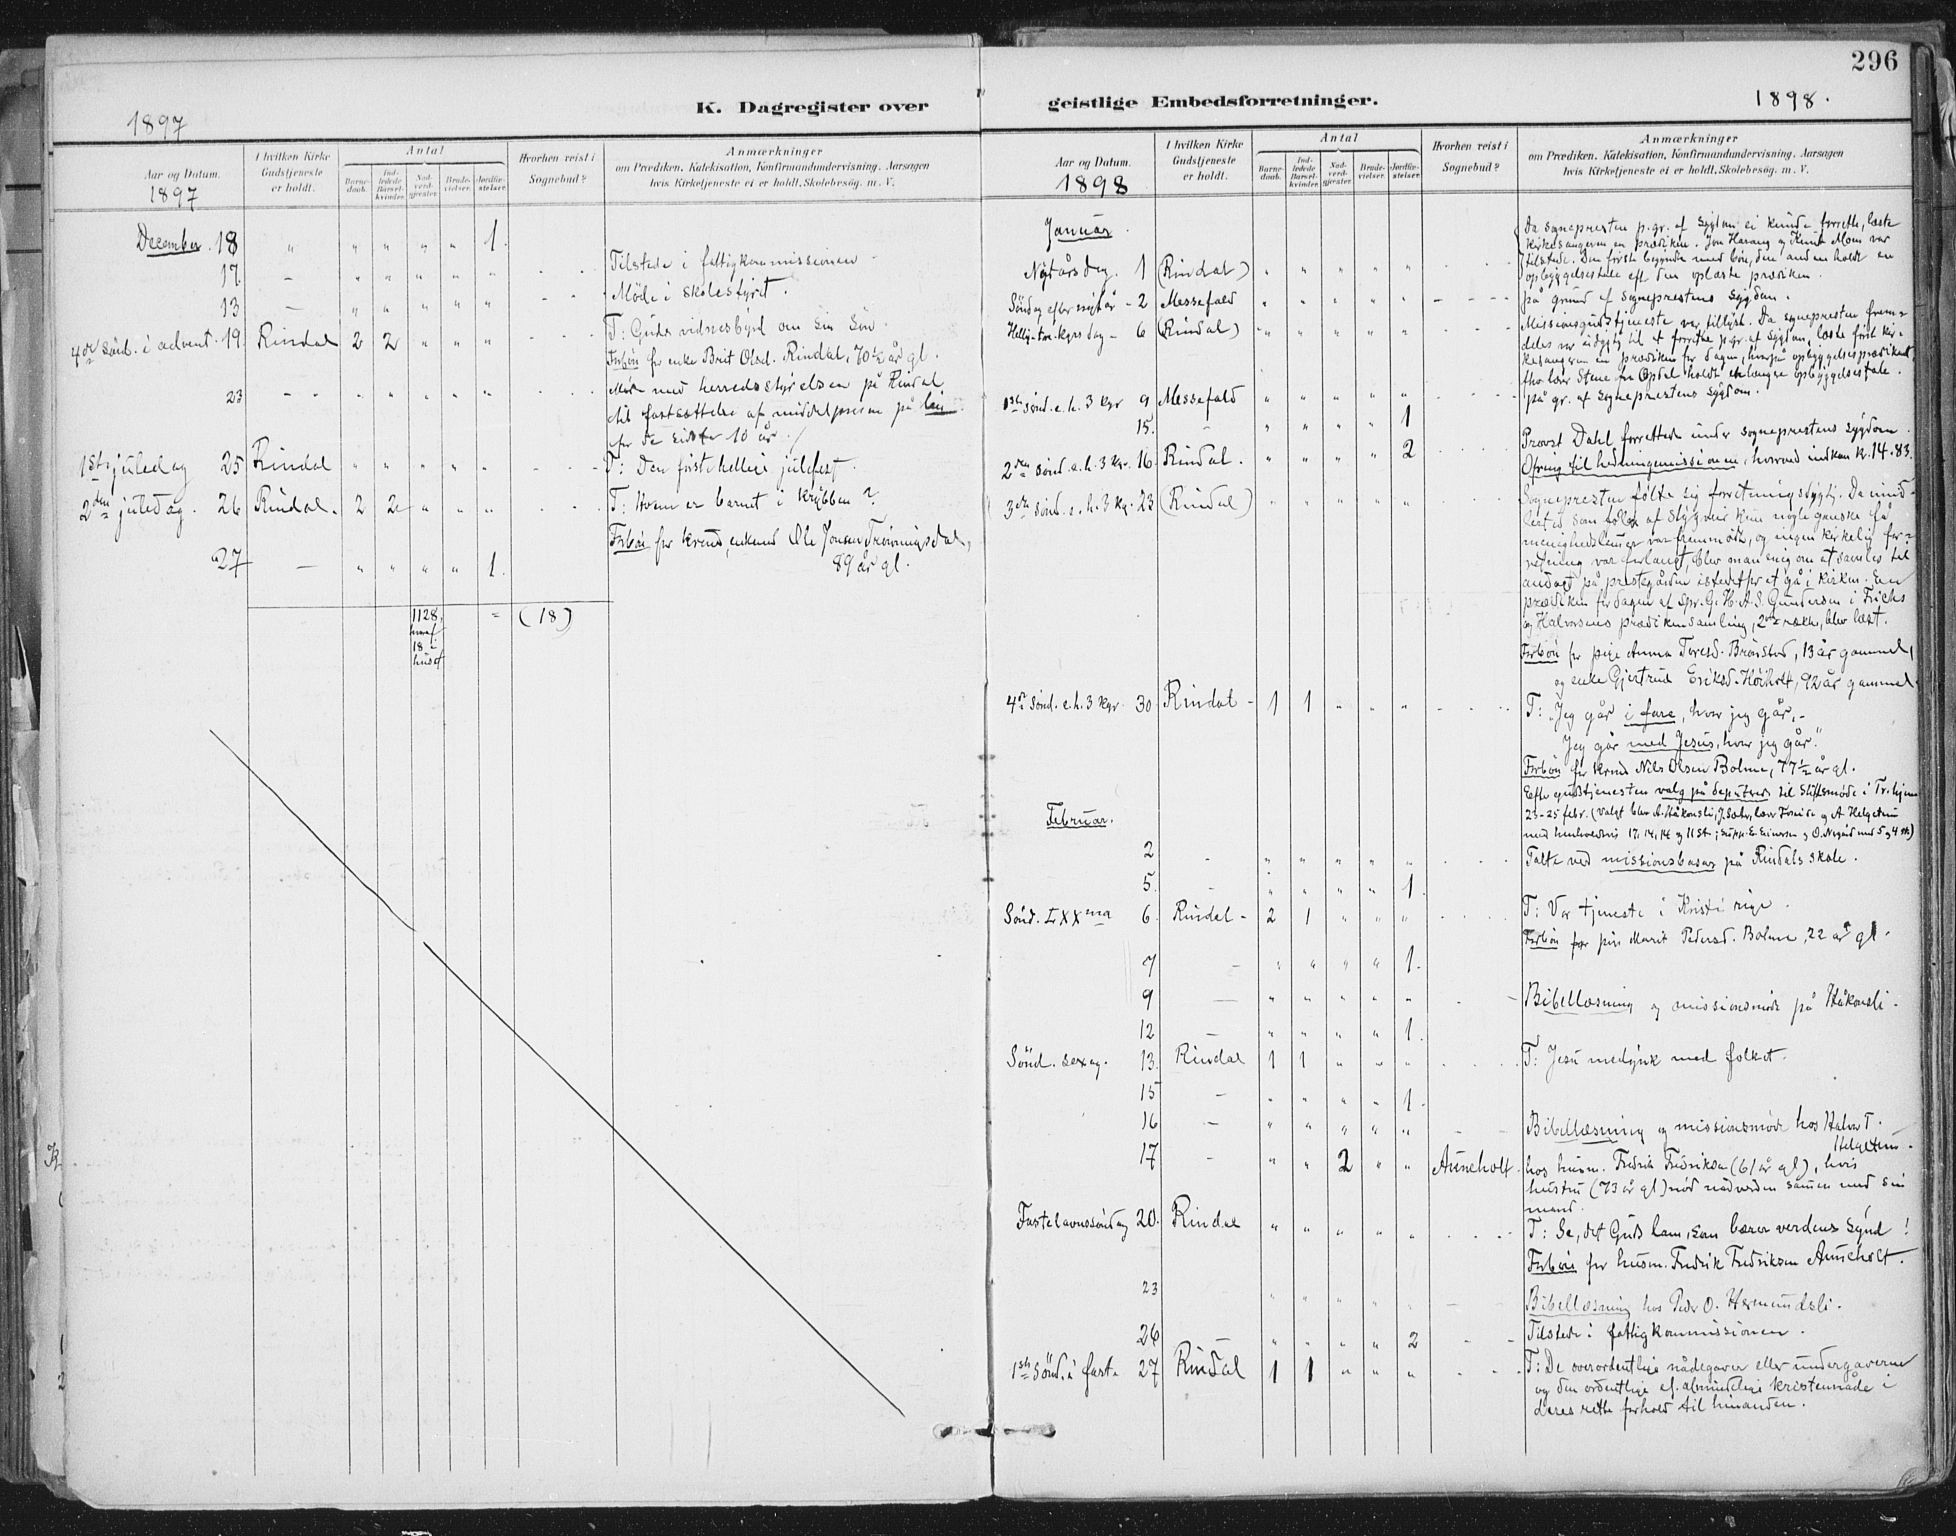 296
K. Dagregister over
geistlige Embedsforretninger.
1897
1898.
Aar og Datum.
1897
I hvilken Kirke Gudstjeneste er holdt.
Antal
Barnedaab.
Indledede Barselkvinder.
Nadverdgjester.
Brudevielser.
Jordfæstelser.
Hvorhen reist i Sognebud?
Anmærkninger
om Prædiken, Katekisation, Konfirmandundervisning. Aarsagen
hvis Kirketjeneste ei er holdt. Skolebesøg. m. V.
December 18 " " " " " 1.
17. - " " " " " Tilstede i fattigkommissionen
13 - " " " " " Møde i skolestyret.
4de Sønd. i advent. 19. Rindal 2 2 " " " T: Guds vidnesbyrd om sin Søn.
Forbøn for enke Brit Olsd. Rindal, 70½ år gl.
23 - - " " " " " Møde med herredsstyrelsen på Rindal
til fastsættelse af middelprisen på
for de sidste 10 år.
1ste juledag 25 Rindal " " " " " T: Den første hellige julefest.
2den juledag. 26 Rindal. 2 2 " " " T: Hvem er barnet i krybben?
Forbøn for Ole Jonsen
89 år gl.
27 - " " " " 1.
1128, = (18)
hvoraf
18 i
huset
Aar og Datum.
1898
I hvilken Kirke Gudstjeneste er holdt.
Antal
Barnedaab.
Indledede Barselkvinder.
Nadverdgjester.
Brudevielser.
Jordfæstelser.
Hvorhen reist i Sognebud?
Anmærkninger
om Prædiken, Katekisation, Konfirmandundervisning. Aarsagen
hvis Kirketjeneste ei er holdt. Skolebesøg. m. V.
Januar.
Da sognepresten p. gr. af sygdom ei kunde forrette, læste
kirkesangeren en prædiken. Jon Harang og Mom var
tilstede. Den første begyndte med bøn, den anden holdt en
Nytårsdag. 1 (Rindal) " " " " " opbyggelsestale eft. den oplæste prædiken.
Søndag efter nytår - 2 Messefald " " " " " på grund af sogneprestens sygdom.
Hellig-tre-kgrs dag - 6 (Rindal) " " " " " Missionsgudstjeneste var tillyst. Da sognepresten frem-
deles var udygtig til at forrette p. gr. af sygdom, læste først kir-
kesangeren en prædiken for dagen, hvorpå
Stene fra Opdal holdt en længre opbyggelsestale.
1ste Sønd. e. h. 3 kgr 9 Messefald " " " " " på gr. af sogneprestens sygdom.
15. - " " " " 1
2den sønd. e. h. 3 kgr. 16. Rindal. " " " " 2 Provst Dahl forrettede under sogneprestens sygdom.
Ofring til hedningemissionen, hvorved indkom kr. 14.83.
3die sønd. e. h. 3 kg. 23 (Rindal) " " " " " Sognepresten følte sig forretningsdygtig. Da imid-
lertid som følge af stygveir kun nogle ganske få
menighedslemmer var fremmødte, og ingen kirkelig for-
retning var forlangt, blev man enig om at samles til
andagt på prestegården istedetfor at gå i kirken. En
prædiken for dagen af Spr. G. H. A. S. Gundersen i Frichs
og Halvorsens prædikensamling, 2den række, blev læst.
Forbøn for pige Anna Toresd. Brønstad, 13 år gammel,
og enke Gjertrud Eriksd. 92 år gammel
4de Sønd. e. h. 3 kgr. 30. Rindal - 1 1 " " " T: "Jeg går i fare, hvor jeg går, -
Jeg går med Jesus, hvor jeg går."
Forbøn for Nils Olsen Bolme, 77½ år gl.
Efter gudstjenesten valg på deputerede til Stiftsmøde i Tr.hjem
23-25 febr. (Valgt blev A. Håkonsli, og A Helgetun
med henholdsvis 17, 14, 14 og 11 St.; og O. med 5 og 4 st.)
Februar.
2 - " " " " " Talte ved missionsbasar på Rindals skole.
5. - " " " " 1.
Sønd. LXXma 6. Rindal - 2 1 " " " T: Vor tjeneste i Kristi rige.
Forbøn for Marit Pedersd. Bolme, 22 år gl.
7 - " " " " 1.
9 - " " " " " Bibellæsning og missionsmøde på Håkonsli.
12 - " " " " 1.
Sønd. sexag. 13. Rindal 1 1 " " " T: Jesu medynk med folket.
15 - " " " " 1.
16 - " " " " " Bibellæsning og missionsmøde hos Halvor T.
Helgetun.
17 - " " 2 " " Auneholt. hos husm. Fredrik Fredriksen (61 år gl), hvis
hustru (73 år gl) nød nadverden sammen med sin
mand.
Fastelavnssøndag 20. Rindal " " " " " T: Se, det Guds lam, som bærer verdens synd!
Forbøn for husm. Fredrik Fredriksen Auneholt.
23 " " " " " Bibellæsning hos Peder O. Hermundsli.
26 " " " " 2 Tilstede i fattigkommissionen.
1ste Sønd. i fast. 27 Rindal 1 1 " " " T: De overordentlige nådegaver eller undergaverne
og den ordentlige el. almindelige kristennåde i
deres rette forhold til hinanden.